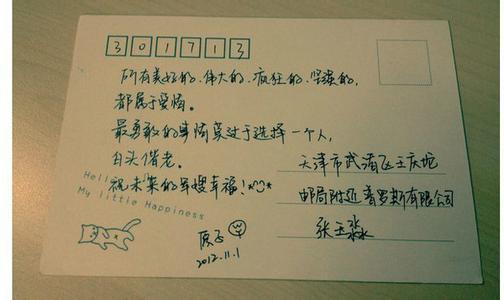 301713
所有美好的、伟大的、疯狂的、坚毅的,
都属于爱情。
最勇敢的事情莫过于选择一个人,
白头偕老。
祝未来的军嫂幸福!
Hello
My little Happiness
天津市武清区王庆坨
邮局附近普罗斯有限公司
张玉淼
2012.11.1